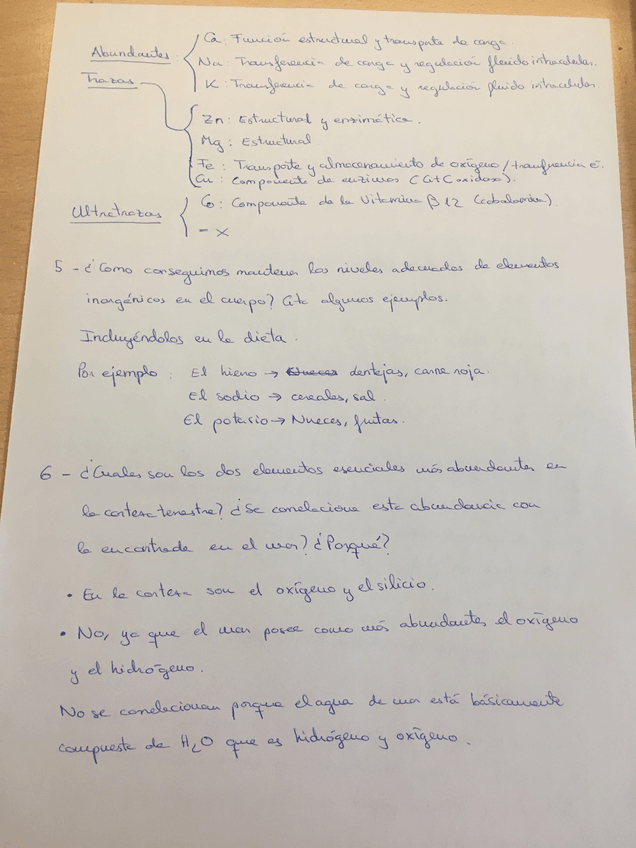 Abundantes:
Ca: Función estructural y transporte de carga.
Na: Transferencia de carga y regulación fluido intracelular.
K: Transferencia de carga y regulación fluido intracelular.
Trazas
Zn: Estructural y enzimática.
Mg: Estructural
Fe: Transporte y almacenamiento de oxígeno/tranferencia e-.
Cu: Componente de enzimas (Cit C oxidasa).
Ultratrazas
Co: Componente de la Vitamina B12 (cobalamina).
- X
5 - ¿Como conseguimos mantener los niveles adecuados de elementos
inorgánicos en el cuerpo? Cita algunos ejemplos.
Incluyéndolos en la dieta.
Por ejemplo: El hierro → Nueces lentejas, carne roja.
El sodio → cereales, sal.
El potasio → Nueces, frutas.
6 - ¿Cuales son los dos elementos esenciales más abundantes en
la corteza terrestre? ¿Se correlaciona esta abundancia con
la encontrada en el mar? ¿Porqué?
• En la corteza son el oxígeno y el silicio.
• No, ya que el mar posee como más abundantes el oxígeno
y el hidrógeno.
No se correlacionan porque el agua de mar está básicamente
compuesta de H2O que es hidrógeno y oxígeno.